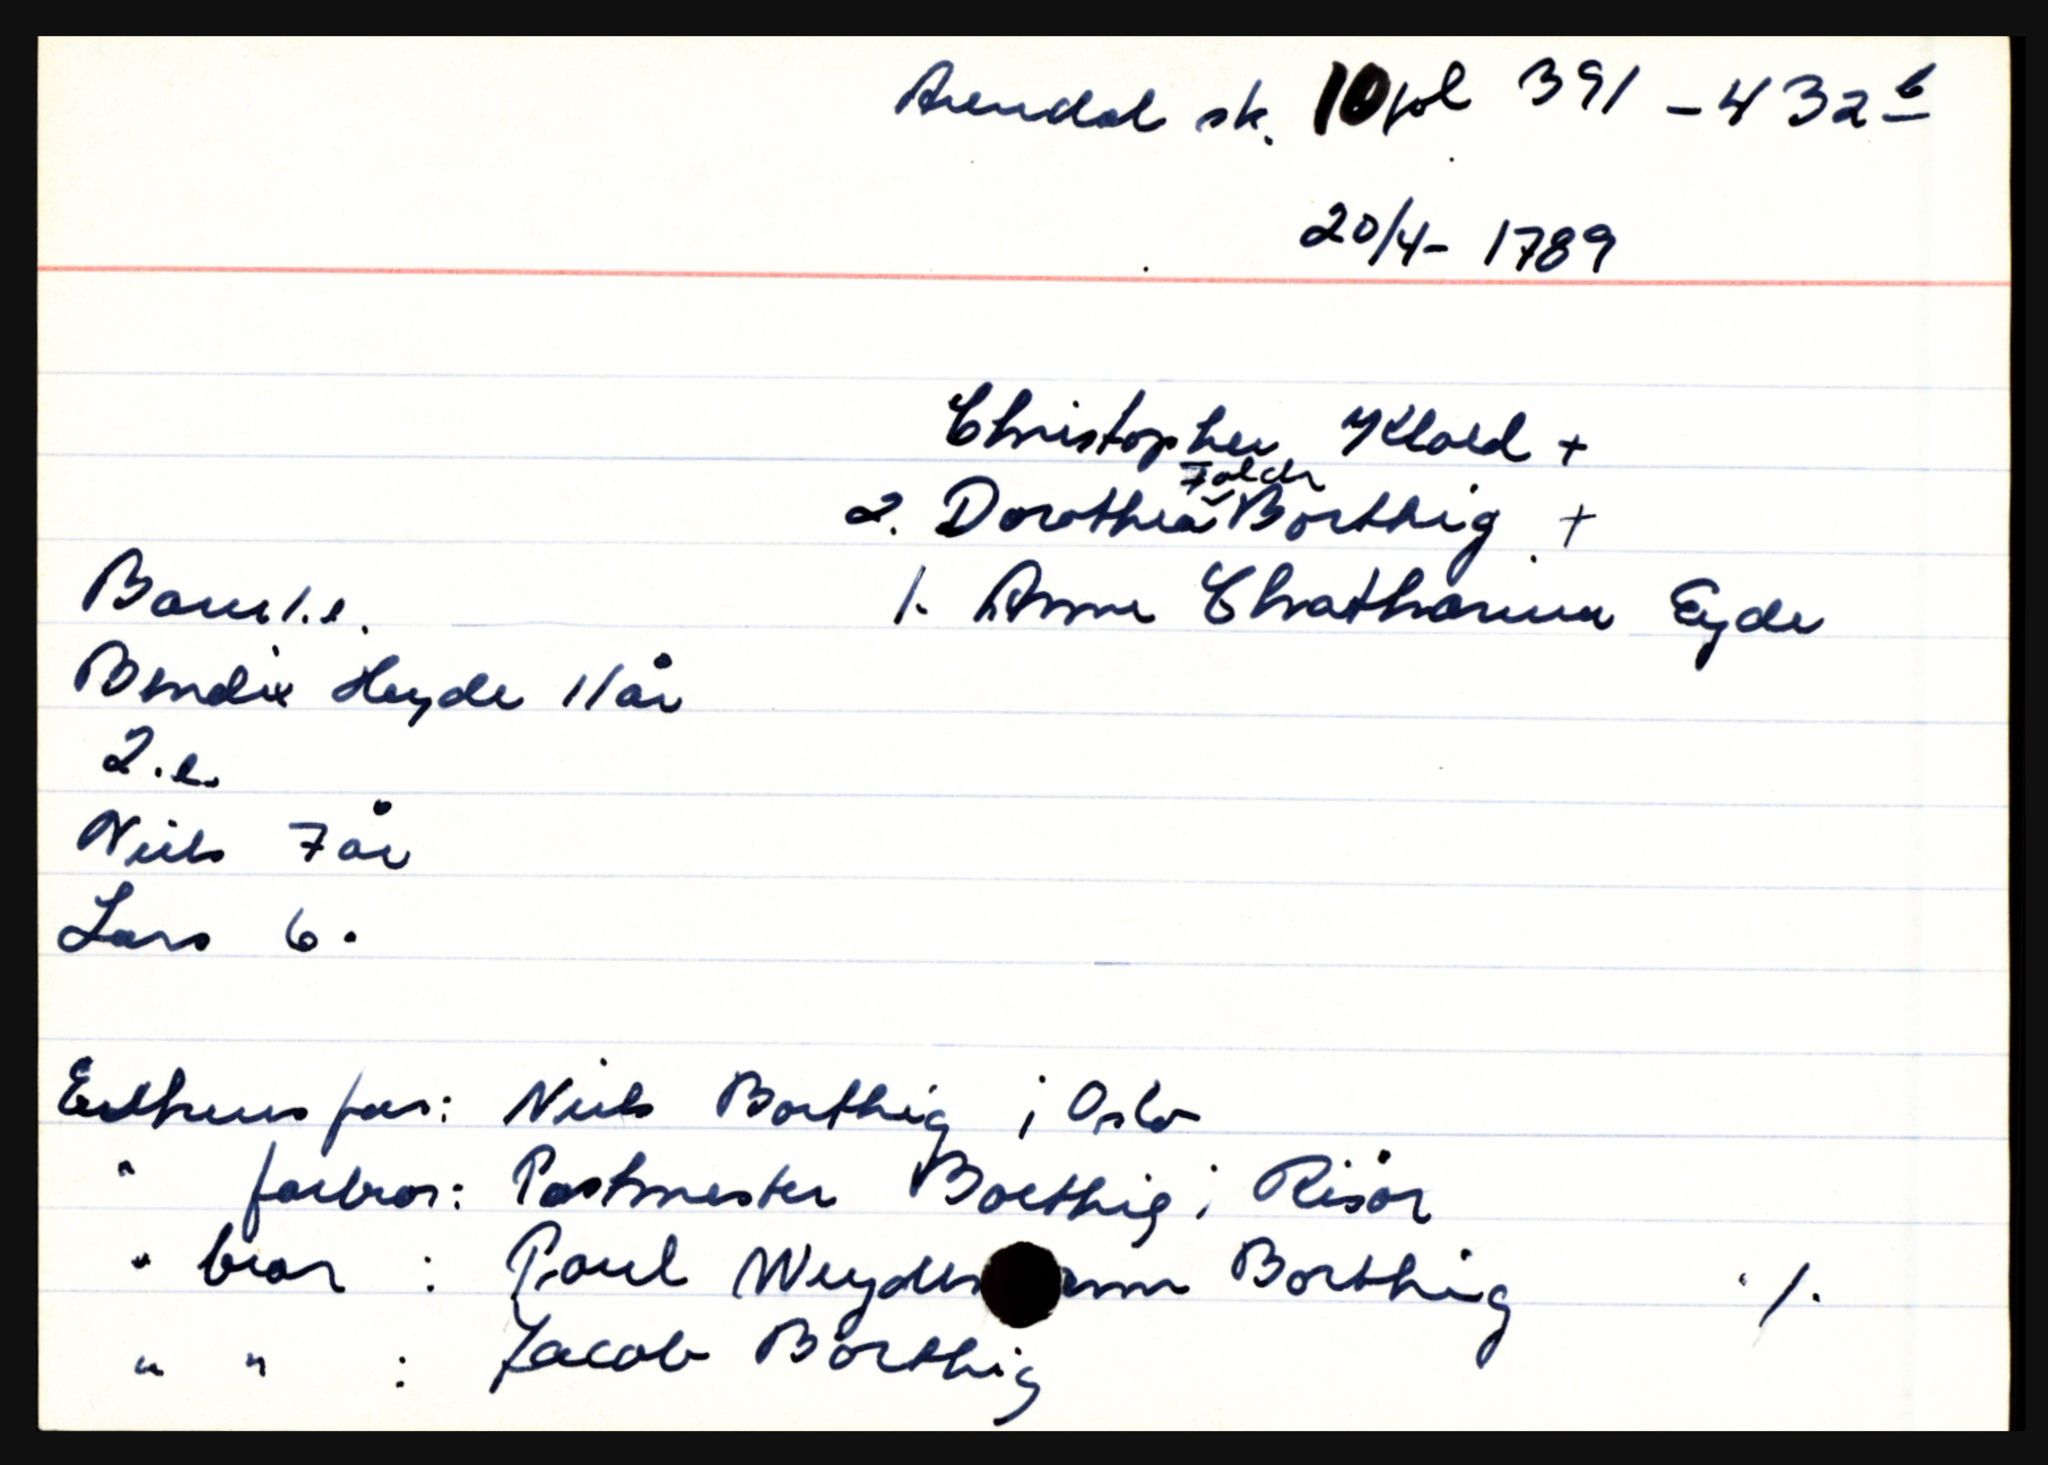 Arendal sk. 10 fol 391 - 432 b
20/4 - 1789
Christopher Klold +
2. Dorothea Foldr Borthig +
1. Anne Chatharina Eyde
Barn 1.e.
Bendix Heyde 11 år
2.e.
Niels 7 år
Lars 6.
Enkens far: Niels Borthig i Oslo
" farbror: Postmester Borthig i Risör
" bror : Poul Weyde nn Borthig ./.
" " : Jacob Borthig